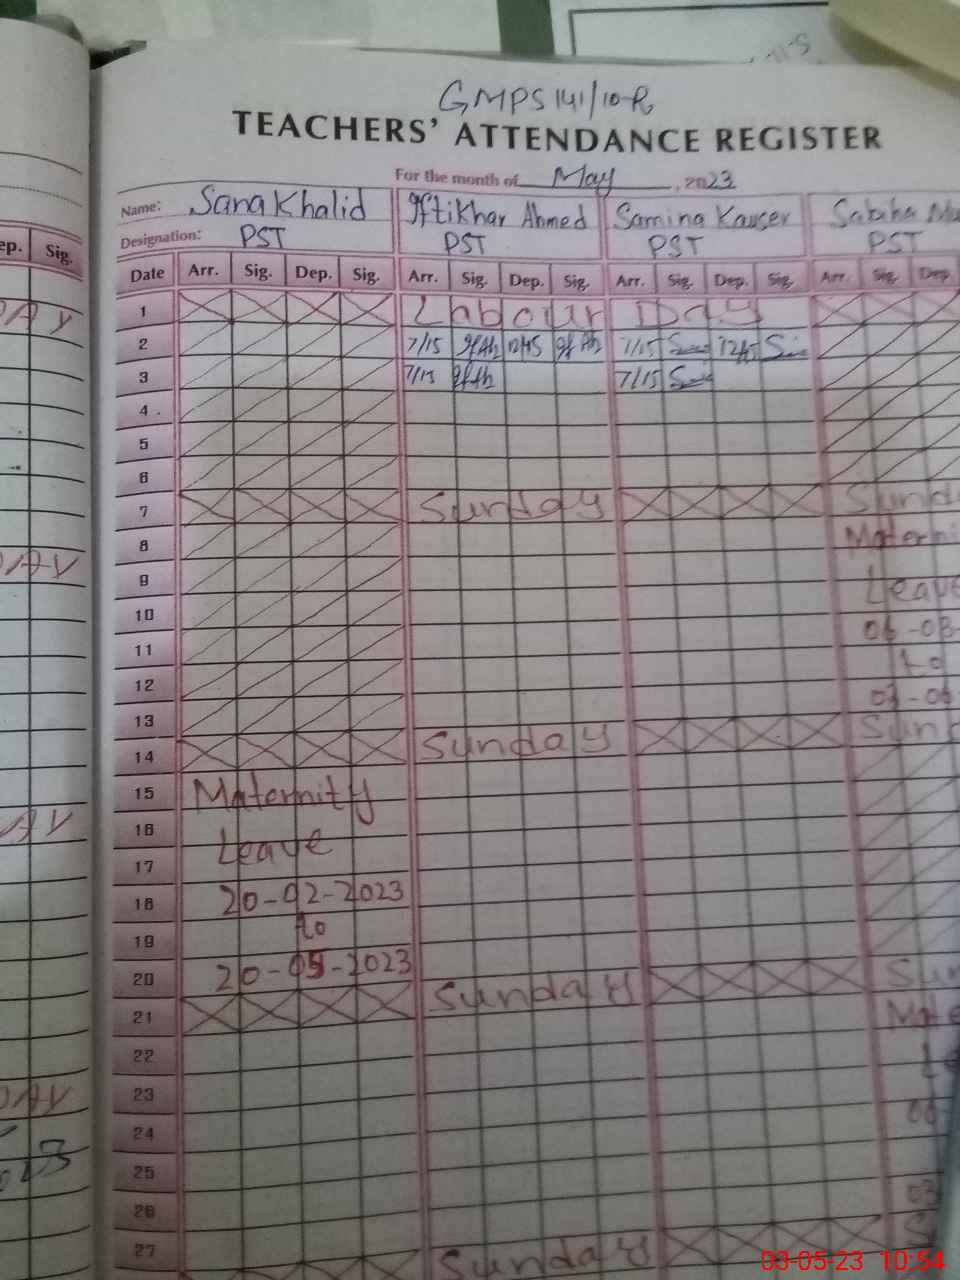 GMPS 141/10-R
TEACHERS' ATTENDANCE REGISTER
For the month of May, 2023
Name: Sana Khalid Iftikhar Ahmed Samina Kauser Sabiha
Designation: PST PST PST PST
ep. Sig. Date Arr. Sig. Dep. Sig. Arr. Sig. Dep. Sig. Arr. Sig. Dep. Sig. Arr. Sig. Dep.
1 Labour Day
2 7/15 12/45 7/15 12/45
3 7/15 7/15
4
5
6
7 Sunday Sund
8 Materni
9 Leave
10
11 to
12
13
14 Sunday Sun
15 Maternity
16
17 Leave
18 20-02-2023
19 to
20 20-05-2023
21 Sunday
22
23
24
25
26
27 Sunday
03-05-23 10:54